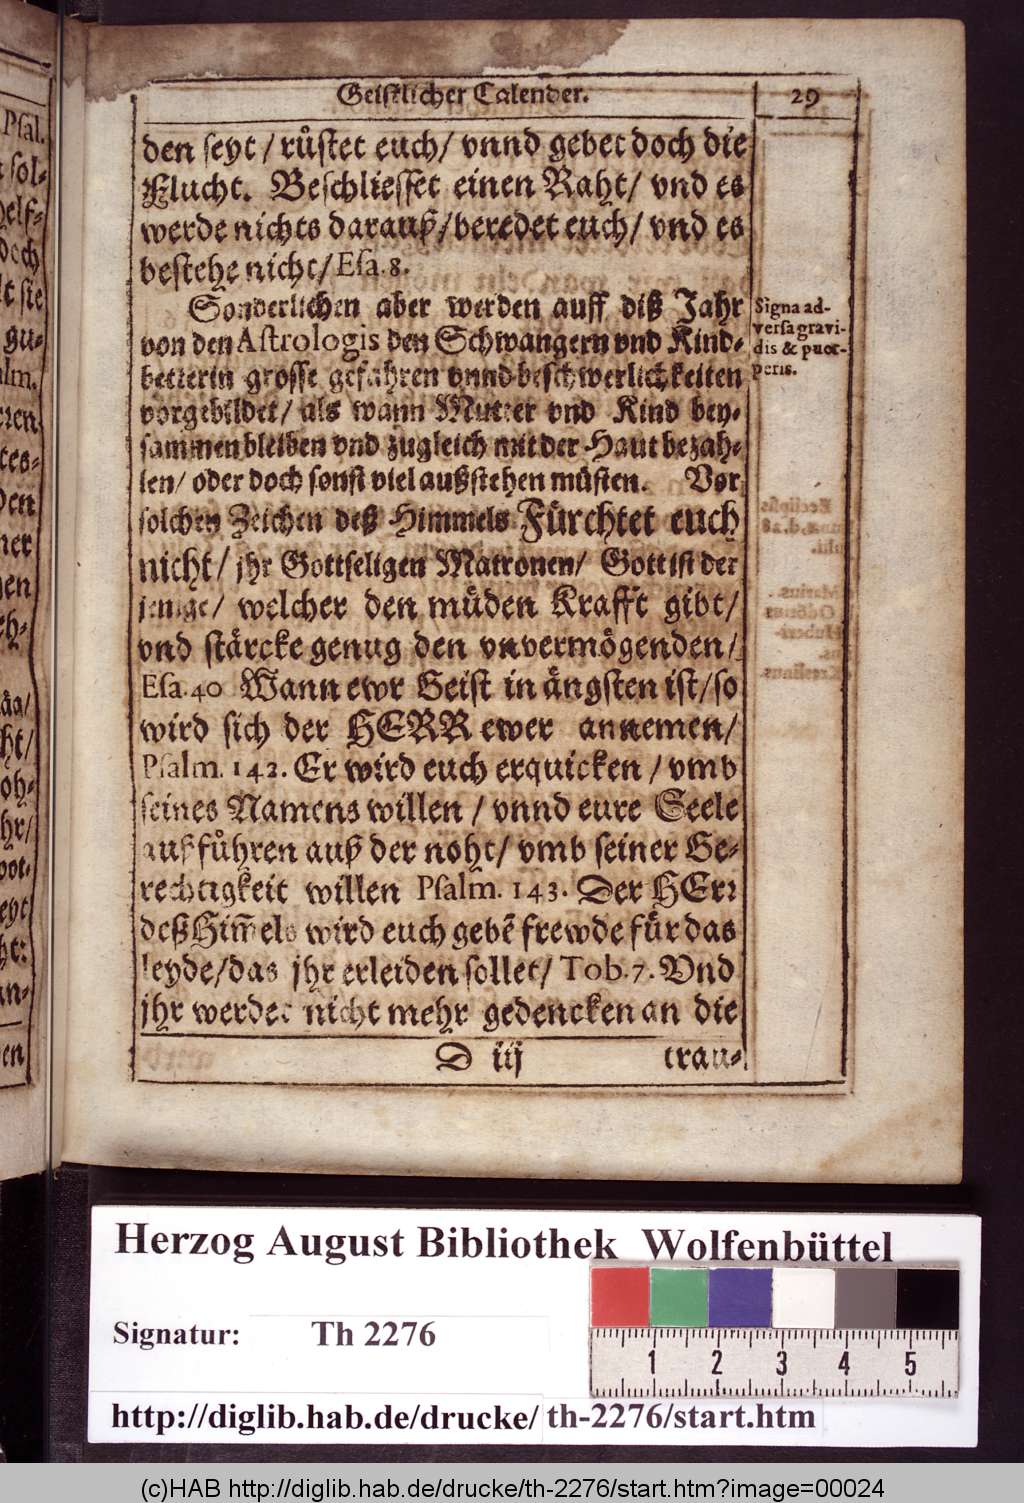 Geistlicher Calender.
29
den seyt / rüstet euch / vnnd gebet doch die
Flucht. Beschliesset einen Raht / vnd es
werde nichts darauß / beredet euch / vnd es
bestehe nicht / Esa. 8.
Sonderlichen aber werden auff diß Jahr
von den Astrologis den Schwangern vnd Kind-
betterin grosse gefahren vnnd beschwerlichkeiten
vorgebildet / als wann Mutter vnd Kind bey-
sammen bleiben vnd zugleich mit der Haut bezah-
len / oder doch sonst viel außstehen müsten. Vor
solchen Zeichen deß Himmels Fürchtet euch
nicht / jhr Gottseligen Matronen / Gott ist der
jenige / welcher den müden Krafft gibt /
vnd stärcke genug den vnvermögenden /
Esa. 40 Wann ewr Geist in ängsten ist / so
wird sich der HERR ewer annemen /
Psalm. 142. Er wird euch erquicken / vmb
seines Namens willen / vnnd eure Seele
außführen auß der noht / vmb seiner Ge-
rechtigkeit willen Psalm. 143. Der HErr
deß Him̅els wird euch gebẽ frewde für das
leyde / das jhr erleiden sollet / Tob. 7. Vnd
jhr werdet nicht mehr gedencken an die
D iij
trau-
Signa ad-
versa gravi-
dis & puer-
peris.
Psal.
sol-
helf-
doch
sie
gu-
alm.
den
oh-
hr /
eyt
an-
en
Herzog August Bibliothek Wolfenbüttel
Signatur: Th 2276
http://diglib.hab.de/drucke/ th-2276/start.htm
1 2 3 4 5
(c)HAB http://diglib.hab.de/drucke/th-2276/start.htm?image=00024